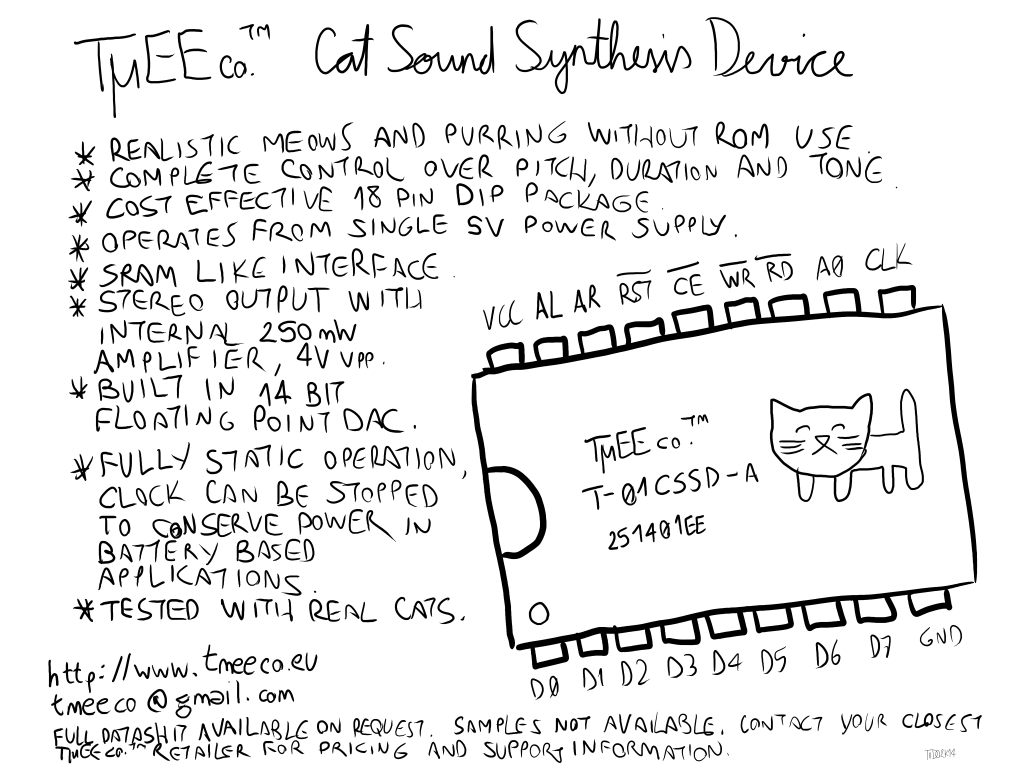 TμEE co.™ Cat Sound Synthesis Device
* REALISTIC MEOWS AND PURRING WITHOUT ROM USE.
* COMPLETE CONTROL OVER PITCH, DURATION AND TONE.
* COST EFFECTIVE 18 PIN DIP PACKAGE.
* OPERATES FROM SINGLE 5V POWER SUPPLY.
* SRAM LIKE INTERFACE.
* STEREO OUTPUT WITH
INTERNAL 250mW
AMPLIFIER, 4V VPP.
* BUILT IN 14 BIT
FLOATING POINT DAC.
* FULLY STATIC OPERATION,
CLOCK CAN BE STOPPED
TO CONSERVE POWER IN
BATTERY BASED
APPLICATIONS.
* TESTED WITH REAL CATS.
VCC AL AR R̅S̅T̅ C̅E̅ W̅R̅ R̅D̅ A0 CLK
TμEE co.™
T-01CSSD-A
251401EE
D0 D1 D2 D3 D4 D5 D6 D7 GND
http://www.tmeeco.eu
tmeeco@gmail.com
FULL DATASHIT AVAILABLE ON REQUEST. SAMPLES NOT AVAILABLE. CONTACT YOUR CLOSEST
TμEE co.™ RETAILER FOR PRICING AND SUPPORT INFORMATION.